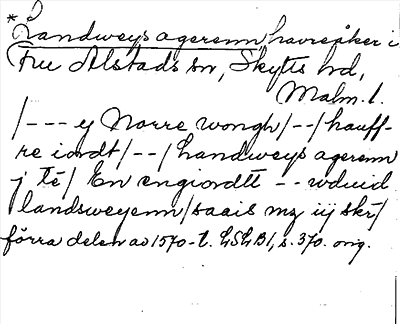 * Landweys agerenn havreåker i
Fru Alstads sn, Skytts hd,
Malm. l.
/--- ey Norre wongh/--/hauff-
re iordt/--/Landweys agerenn
j té/ En engiordtt -- wduid
landsweyenn/saais mz iij skr/
förra delen av 1570-t. LSLB1, s. 370. orig.